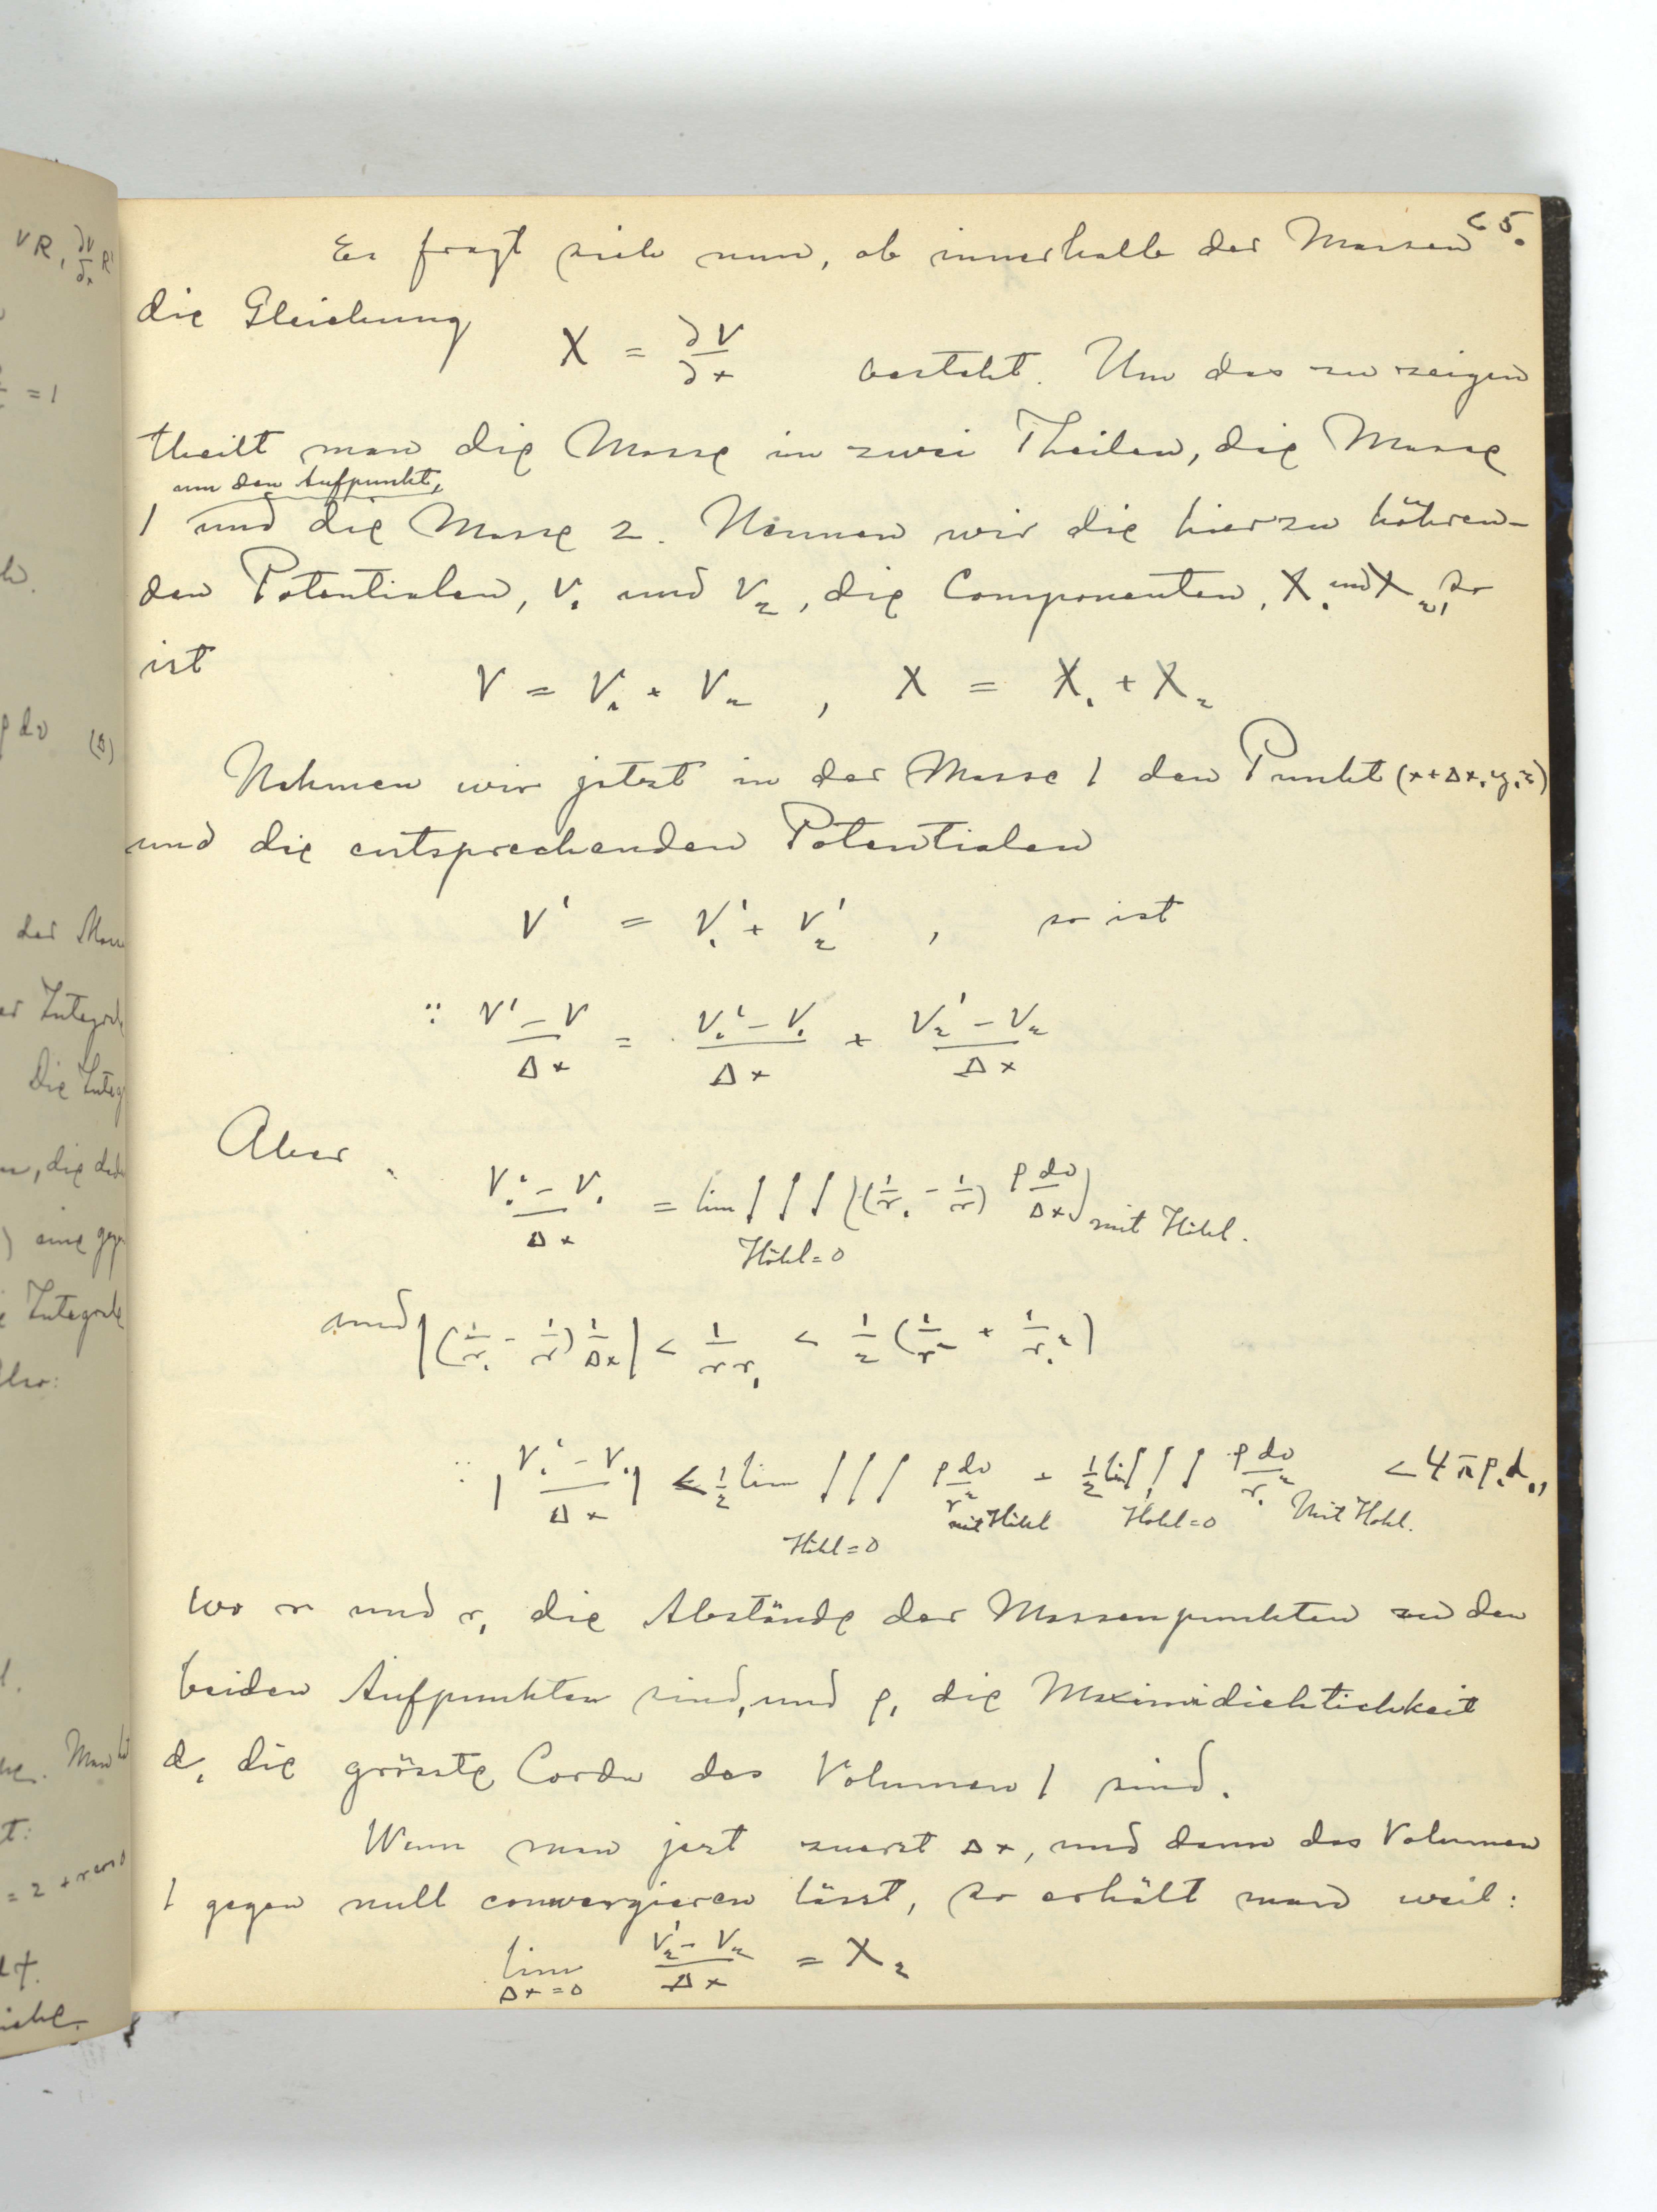 65.
Es fragt sich nun, ob innerhalb der Massen
die Gleichung X = ∂V/∂x besteht. Um das zu zeigen
theilt man die Masse in zwei Theilen, die Masse
um den Aufpunkt,
1 und die Masse 2. Nennen wir die hierzu höhren-
den Potentialen, V₁ und V₂, die Componenten, X₁ und X₂, so
ist
V = V₁ + V₂ , X = X₁ + X₂
Nehmen wir jetzt in der Masse 1 den Punkt (x+Δx, y, z)
und die entsprechenden Potentialen
V' = V₁' + V₂' , so ist
∵ (V' - V)/Δx = (V₁' - V₁)/Δx + (V₂' - V₂)/Δx
Aber
(V₁' - V₁)/Δx = lim ∫∫∫ ((1/r₁ - 1/r) ρ dv/Δx) mit Höhl.
Höhl = 0
und |(1/r₁ - 1/r) 1/Δx| < 1/(r r₁) < ½ (1/r² + 1/r₁²)
∵ |(V₁' - V₁)/Δx| < ½ lim ∫∫∫ ρ dv/r² + ½ lim ∫∫∫ ρ dv/r₁² < 4πρ₁d₁,
Höhl = 0 mit Höhl Höhl = 0 Mit Hohl.
wo r und r₁ die Abstände der Massenpunkten zu den
beiden Aufpunkten sind, und ρ₁ die Maximidichtichkeit
d₁ die grösste Corda des Volumen 1 sind.
Wenn man jezt zuerst Δx, und dann das Volumen
1 gegen null convergieren lässt, so erhält man weil:
lim (V₂' - V₂)/Δx = X₂
Δx = 0